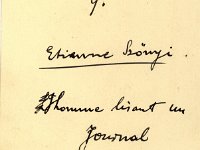 9.
Etienne Szőnyi.
Homme lisant un
Journal